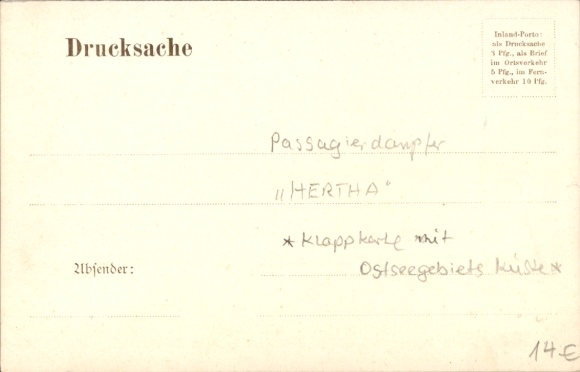 Drucksache
Inland-Porto:
als Drucksache
3 Pfg., als Brief
im Ortsverkehr
5 Pfg., im Fern-
verkehr 10 Pfg.
Passagierdampfer
„HERTHA"
*Klappkarte mit
Ostseegebiets Küste*
Absender:
14-€